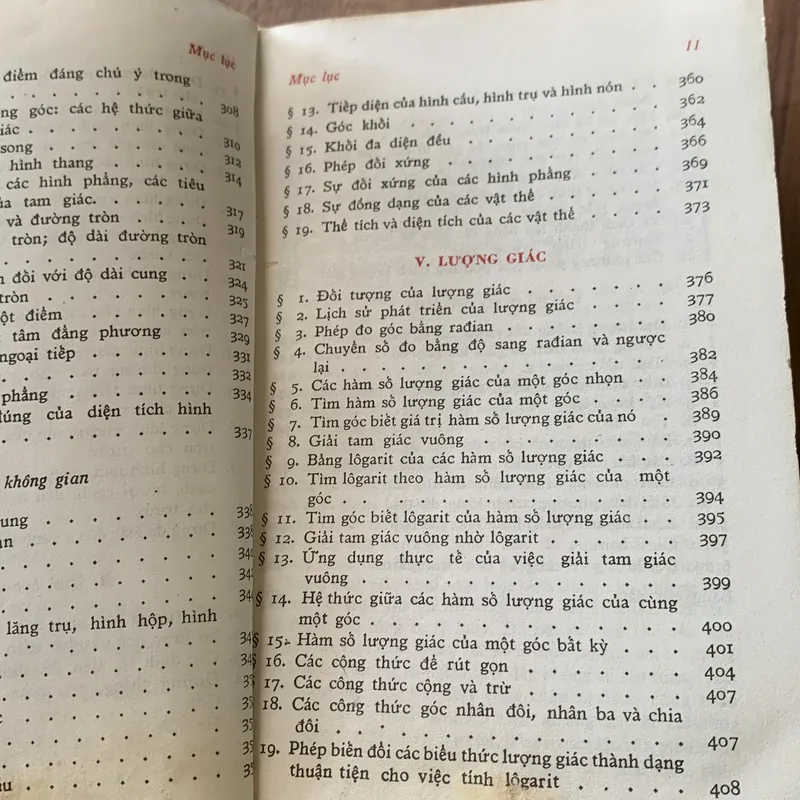 Mục lục
điểm đáng chú ý trong
. . . . . . . . 308
góc: các hệ thức giữa
. . . . . . . . 310
song . . . . . . . 312
hình thang . . . . . 314
các hình phẳng, các tiêu
của tam giác. . . . . . 317
và đường tròn . . . . 319
tròn; độ dài đường tròn
. . . . . . . . 321
đối với độ dài cung . . 324
tròn . . . . . . . 325
một điểm . . . . . . 327
tâm đẳng phương . . . 329
ngoại tiếp . . . . . 331
. . . . . . . . 332
phẳng . . . . . . 334
của diện tích hình
. . . . . . . . 337
không gian
lăng trụ, hình hộp, hình
Mục lục 11
§ 13. Tiếp diện của hình cầu, hình trụ và hình nón . . 360
§ 14. Góc khối . . . . . . . . 362
§ 15. Khối đa diện đều . . . . . . 364
§ 16. Phép đối xứng . . . . . . 366
§ 17. Sự đối xứng của các hình phẳng . . . . 369
§ 18. Sự đồng dạng của các vật thể . . . . 371
§ 19. Thể tích và diện tích của các vật thể . . . . 373
V. LƯỢNG GIÁC
§ 1. Đối tượng của lượng giác . . . . . 376
§ 2. Lịch sử phát triển của lượng giác . . . . 377
§ 3. Phép đo góc bằng rađian . . . . . . 380
§ 4. Chuyển số đo bằng độ sang rađian và ngược
lại . . . . . . . . . . . 382
§ 5. Các hàm số lượng giác của một góc nhọn . . 384
§ 6. Tìm hàm số lượng giác của một góc . . . 386
§ 7. Tìm góc biết giá trị hàm số lượng giác của nó . 389
§ 8. Giải tam giác vuông . . . . . . 390
§ 9. Bảng lôgarit của các hàm số lượng giác . . . 392
§ 10. Tìm lôgarit theo hàm số lượng giác của một
góc . . . . . . . . . . . 394
§ 11. Tìm góc biết lôgarit của hàm số lượng giác . . 395
§ 12. Giải tam giác vuông nhờ lôgarit . . . . 397
§ 13. Ứng dụng thực tế của việc giải tam giác
vuông . . . . . . . . . . 399
§ 14. Hệ thức giữa các hàm số lượng giác của cùng
một góc . . . . . . . . . . 400
§ 15. Hàm số lượng giác của một góc bất kỳ . . . 401
16. Các cộng thức để rút gọn . . . . . . 404
17. Các công thức cộng và trừ . . . . . . 407
18. Các công thức góc nhân đôi, nhân ba và chia
đôi . . . . . . . . . . . 407
19. Phép biến đổi các biểu thức lượng giác thành dạng
thuận tiện cho việc tính lôgarit . . . . . 408